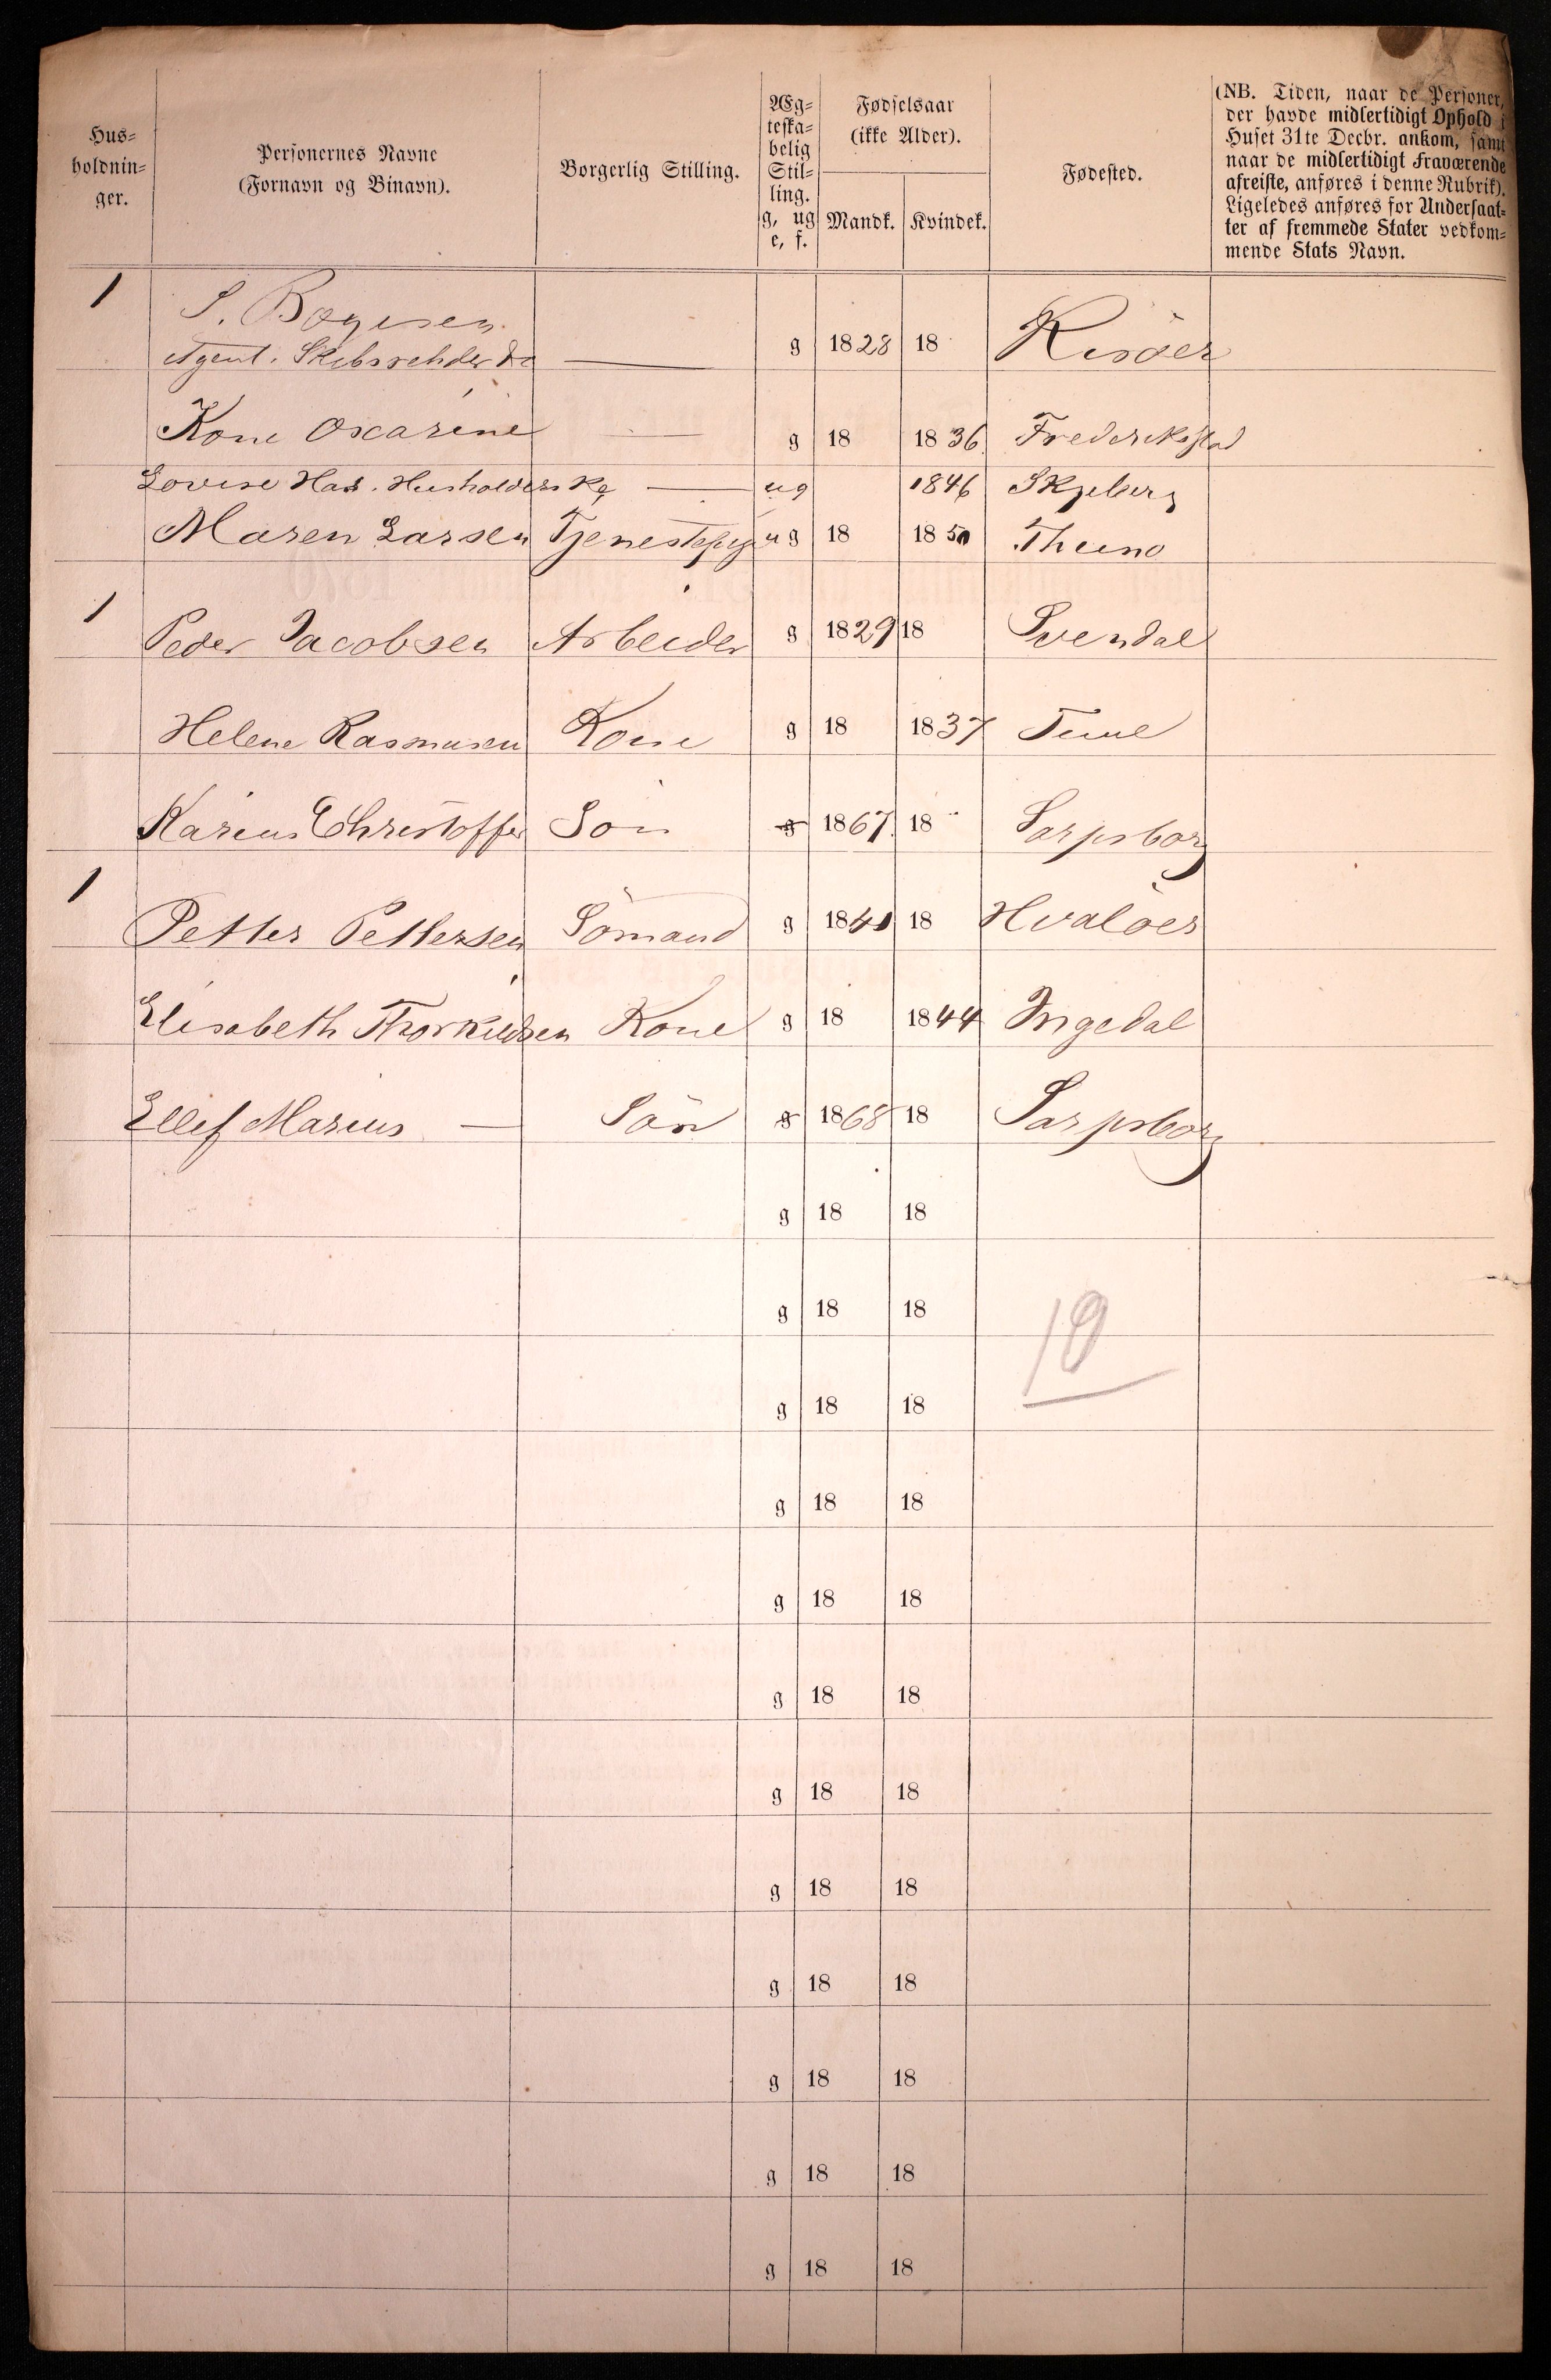 Hus=
holdnin=
ger.
Personernes Navne
(Fornavn og Binavn).
Borgerlig Stilling.
Æg=
teska=
belig
Stil=
ling.
g, ug
e, f.
Fødselsaar
(ikke Alder).
Mandk. Kvindek.
Fødested.
(NB. Tiden, naar de Personer,
der havde midlertidigt Ophold i
Huset 31te Decbr. ankom, samt
naar de midlertidigt fraværende
afreiste, anføres i denne Rubrik).
Ligeledes anføres for Undersaat=
ter af fremmede Stater vedkom=
mende Stats Navn.
1 S. Bøgesen
Agent. Skibsrehder — g 1828 18 Risöer
Kone Oscarine — g 18 1836. Frederikstad
Lovise Husholderske — ug 1846 Skjeberg
Maren Larsen Tjenestepige ug 18 1850 Thuno
1 Peder Jacobsen Arbeider g 1829 18
Helene Rasmusen Kone g 18 1837 Tune
Karius Christoffer Sön g 1867. 18 Sarpsborg
1 Petter Pettersen Sömand g 1840 18 Hvalöer
Elisabeth Thorkildsen Kone g 18 1844 Ingedal
Ellef Marius — Sön g 1868 18 Sarpsborg
g 18 18
g 18 18
10
g 18 18
g 18 18
g 18 18
g 18 18
g 18 18
g 18 18
g 18 18
g 18 18
g 18 18
g 18 18